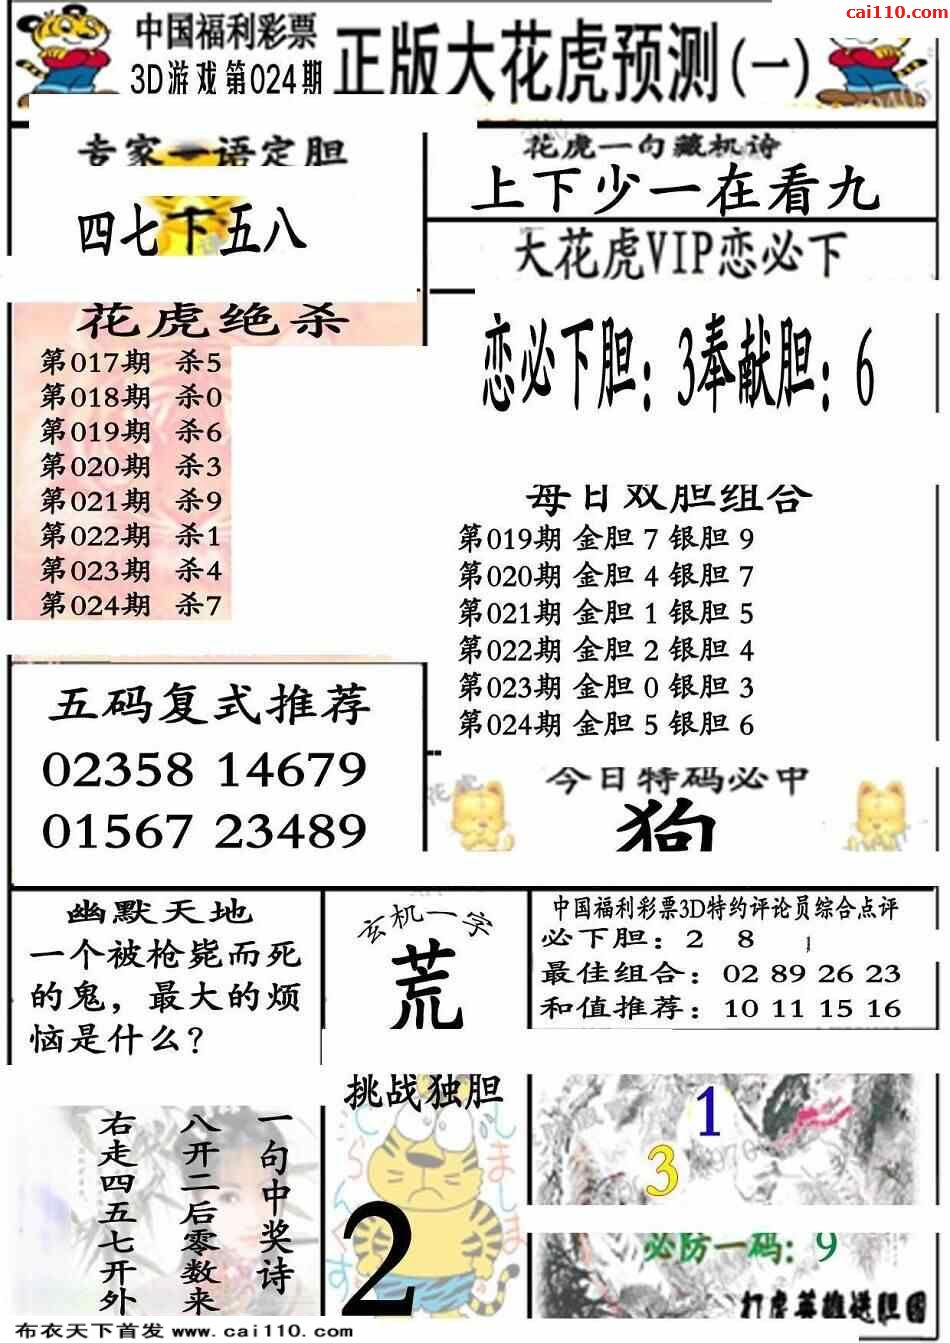 cai110.com
中国福利彩票
3D游戏第024期
正版大花虎预测(一)
专家一语定胆
四七下五八
花虎一句藏机诗
上下少一在看九
大花虎VIP恋必下
恋必下胆：3奉献胆：6
花虎绝杀
第017期 杀5
第018期 杀0
第019期 杀6
第020期 杀3
第021期 杀9
第022期 杀1
第023期 杀4
第024期 杀7
每日双胆组合
第019期 金胆 7 银胆 9
第020期 金胆 4 银胆 7
第021期 金胆 1 银胆 5
第022期 金胆 2 银胆 4
第023期 金胆 0 银胆 3
第024期 金胆 5 银胆 6
五码复式推荐
02358 14679
01567 23489
今日特码必中
狗
幽默天地
一个被枪毙而死
的鬼，最大的烦
恼是什么？
玄机一字
荒
中国福利彩票3D特约评论员综合点评
必下胆：2 8
最佳组合：02 89 26 23
和值推荐：10 11 15 16
一句中奖诗
八开二后零数来
右走四五七开外
挑战独胆
2
1
3
必防一码：9
打虎英雄送胆图
布衣天下首发 www.cai110.com